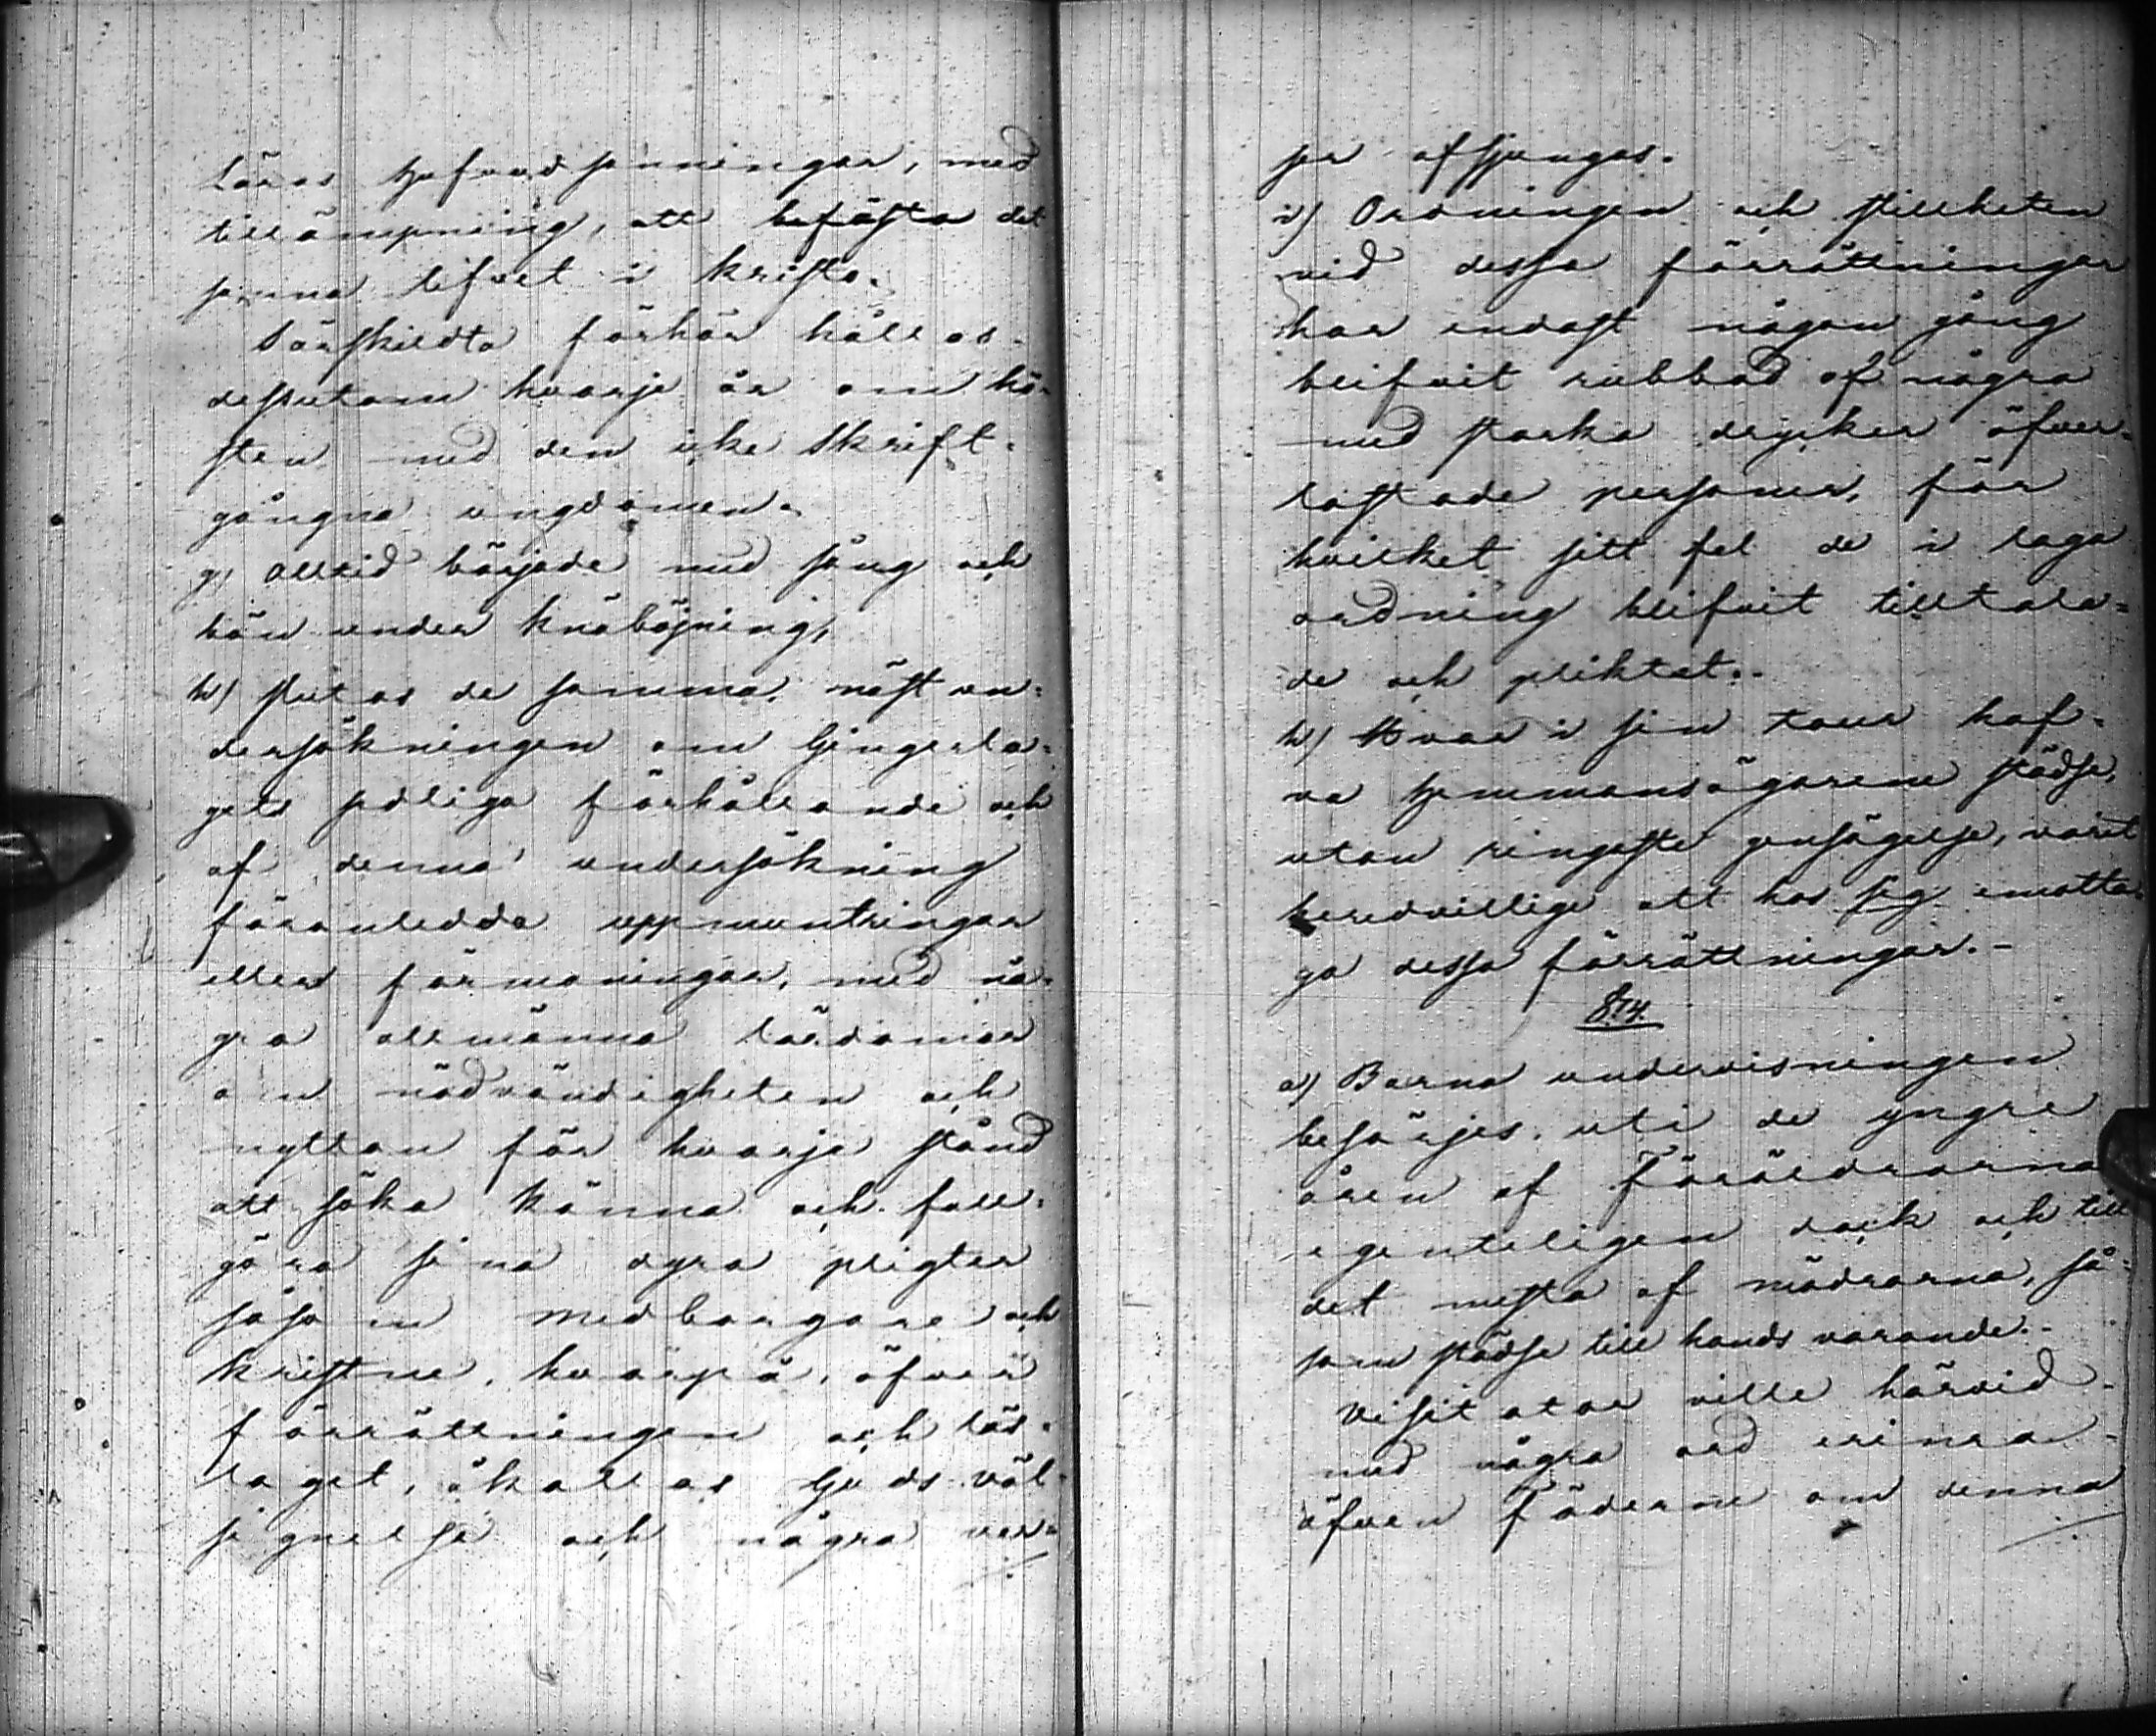 läras hufvudsanningar, med
tillämpning, att befästa det
sanna lifvet i Kristo.
Särskildta förhör hållas
dessutom hvarje år om hö-
sten med den icke Skrift-
gångna ungdomen.
g) Alltid började med sång och
bön under knäböjning,
h) slutas de samma, näst un-
dersökningen om Gingerla-
gets sedliga förhållande och
af denna undersökning
föranledda uppmuntringar
eller förmaningar, med nå-
gra allmänna lärdomar
om nödvändigheten och
nyttan för hvarje stånd
att söka känna och full-
göra sina dyra pligter
såsom medborgare och
kristne, hvarpå, öfver
förrättningen och läs-
laget, åkallas Guds väl-
signelse och några ver-
ser afsjungas.
i) Ordningen och stillheten
vid dessa förrättningar
har endast någon gång
blifvit rubbad af några
med starka drycker öfver-
lastade personer, för
hvilket sitt fel de i laga
ordning blifvit tilltala-
de och pliktat.-
k) Hvar i sin tour haf-
va hemmansägarene städse,
utan ringaste gensägelse, varit
beredvillige att hos sig emotta-
ga dessa förrättningar.-
§.14.
a) Barna undervisningen
besörjes uti de yngre
åren af Föräldrarna
egenteligen dock och till
det mesta af mödrarna, så-
som städse till hands varande.-
Visitator ville härvid
med några ord erinra
äfven fäderne om denna